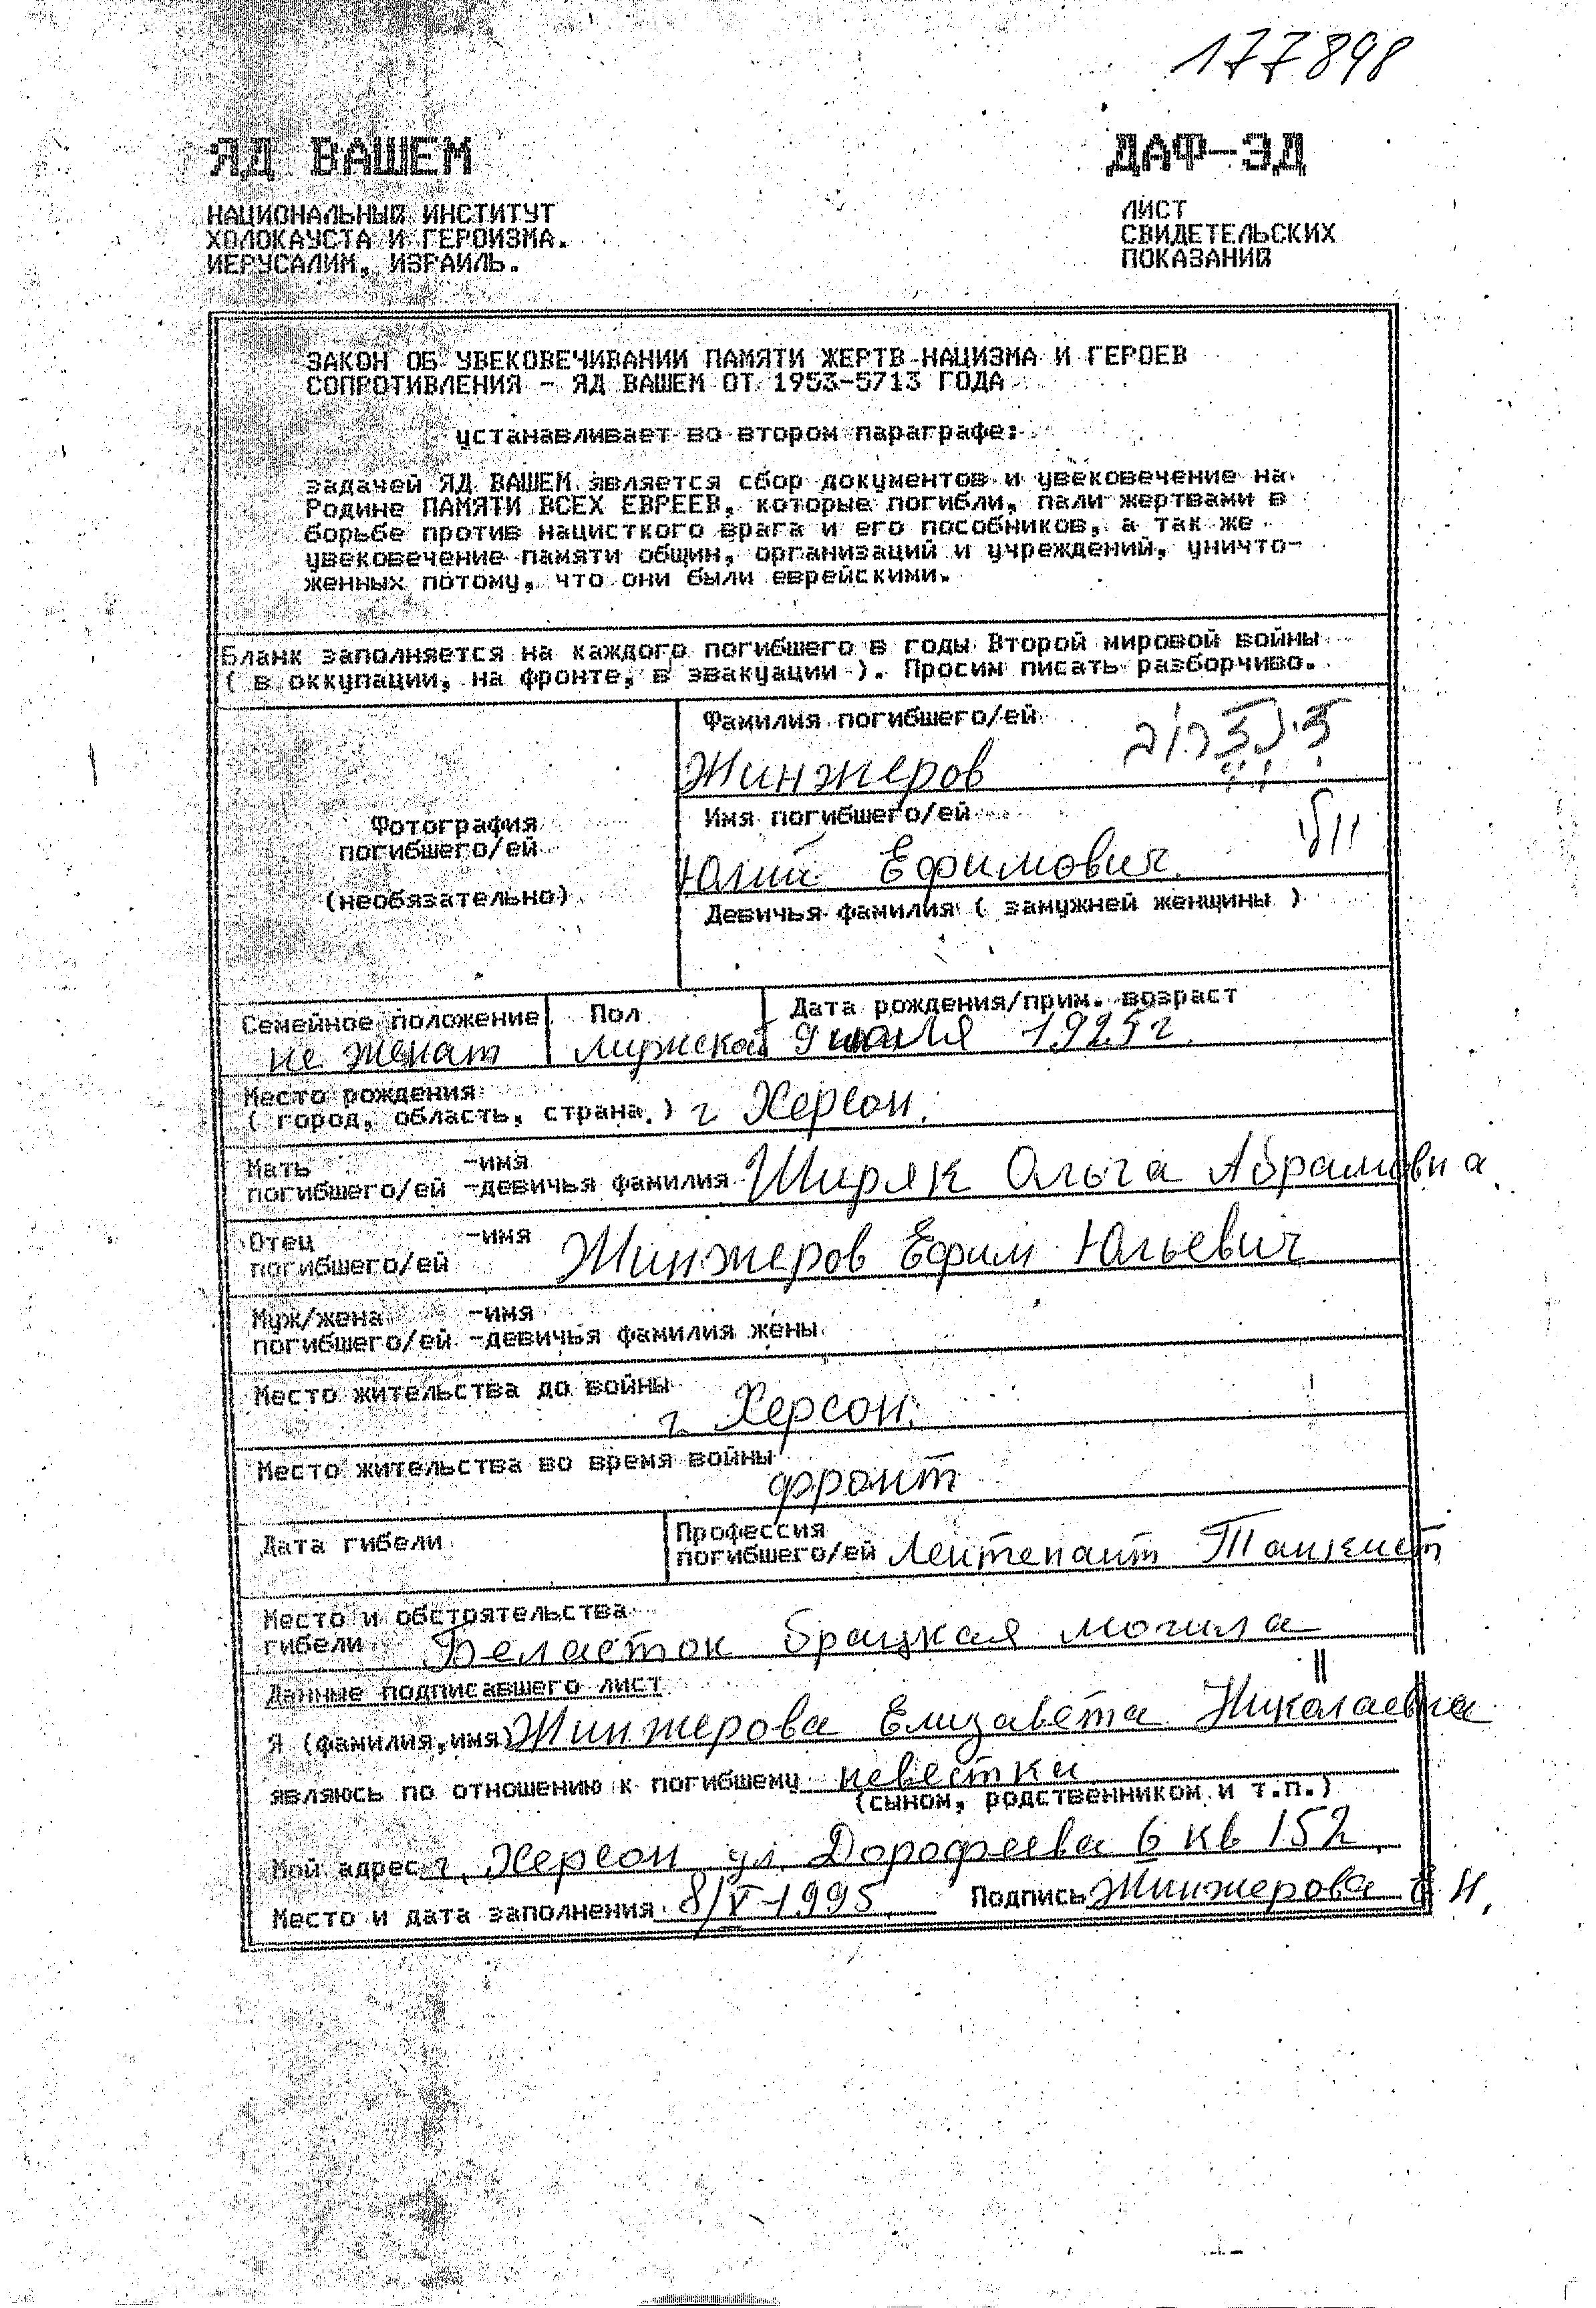 177898
ЯД ВАШЕМ
ДАФ-ЭД
НАЦИОНАЛЬНЫЙ ИНСТИТУТ
ХОЛОКАУСТА И ГЕРОИЗМА.
ИЕРУСАЛИМ, ИЗРАИЛЬ.
ЛИСТ
СВИДЕТЕЛЬСКИХ
ПОКАЗАНИЙ
ЗАКОН ОБ УВЕКОВЕЧИВАНИИ ПАМЯТИ ЖЕРТВ НАЦИЗМА И ГЕРОЕВ
СОПРОТИВЛЕНИЯ - ЯД ВАШЕМ ОТ 1953-5713 ГОДА
устанавливает во втором параграфе:
задачей ЯД ВАШЕМ является сбор документов и увековечение на
Родине ПАМЯТИ ВСЕХ ЕВРЕЕВ, которые погибли, пали жертвами в
борьбе против нацисткого врага и его пособников, а так же
увековечение памяти общин, организаций и учреждений, уничто-
женных потому, что они были еврейскими.
Бланк заполняется на каждого погибшего в годы Второй мировой войны
( в оккупации, на фронте, в эвакуации ). Просим писать разборчиво.
Фотография
погибшего/ей
(необязательно)
Фамилия погибшего/ей
Жинжеров
Имя погибшего/ей
Юлий Ефимович
Девичья фамилия ( замужней женщины )
Семейное положение Пол Дата рождения/прим. возраст
не женат мужской 9 1925 г.
Место рождения
( город, область, страна.) г Херсон.
Мать -имя
погибшего/ей -девичья фамилия Ширяк Ольга Абрамовна
Отец -имя
погибшего/ей Жинжеров Ефим Юльевич
Муж/жена -имя
погибшего/ей -девичья фамилия жены
Место жительства до войны
г. Херсон.
Место жительства во время войны
фронт
Дата гибели Профессия
погибшего/ей Лейтенант Танкист
Место и обстоятельства
гибели Беласток брацкая могила
Данные подписавшего лист
Я (фамилия,имя) Жинжерова Елизавета Николаевна
являюсь по отношению к погибшему невестки
(сыном, родственником и т.п.)
Мой адрес г. Херсон ул. Дорофеева 6 кв 152.
Место и дата заполнения 8/V-1995. Подпись Жинжерова Е.Н.